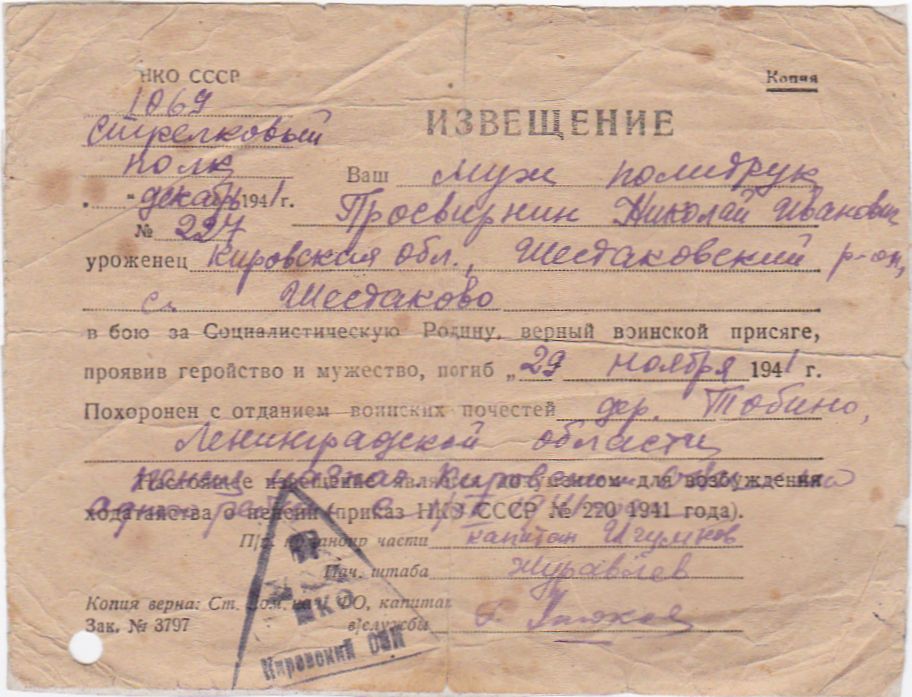 НКО СССР
Копия
1069
стрелковый
полк
ИЗВЕЩЕНИЕ
Ваш муж политрук
" декабрь 1941 г.
Просвирнин Николай Иванович
№ 227
уроженец Кировская обл., Шестаковский р-он,
с. Шестаково
в бою за Социалистическую Родину, верный воинской присяге,
проявив геройство и мужество, погиб „29 ноября 1941 г.
Похоронен с отданием воинских почестей дер. Тобино,
Ленинградской области
Настоящее извещение является документом для возбуждения
ходатайства о пенсии (приказ НКО СССР № 220 1941 года).
П/п. командир части капитан Игумнов
Нач. штаба Журавлев
Копия верна: Ст. пом. нач. ФО, капитан
в/службы
Зак. № 3797
НКО
Кировский ОВК